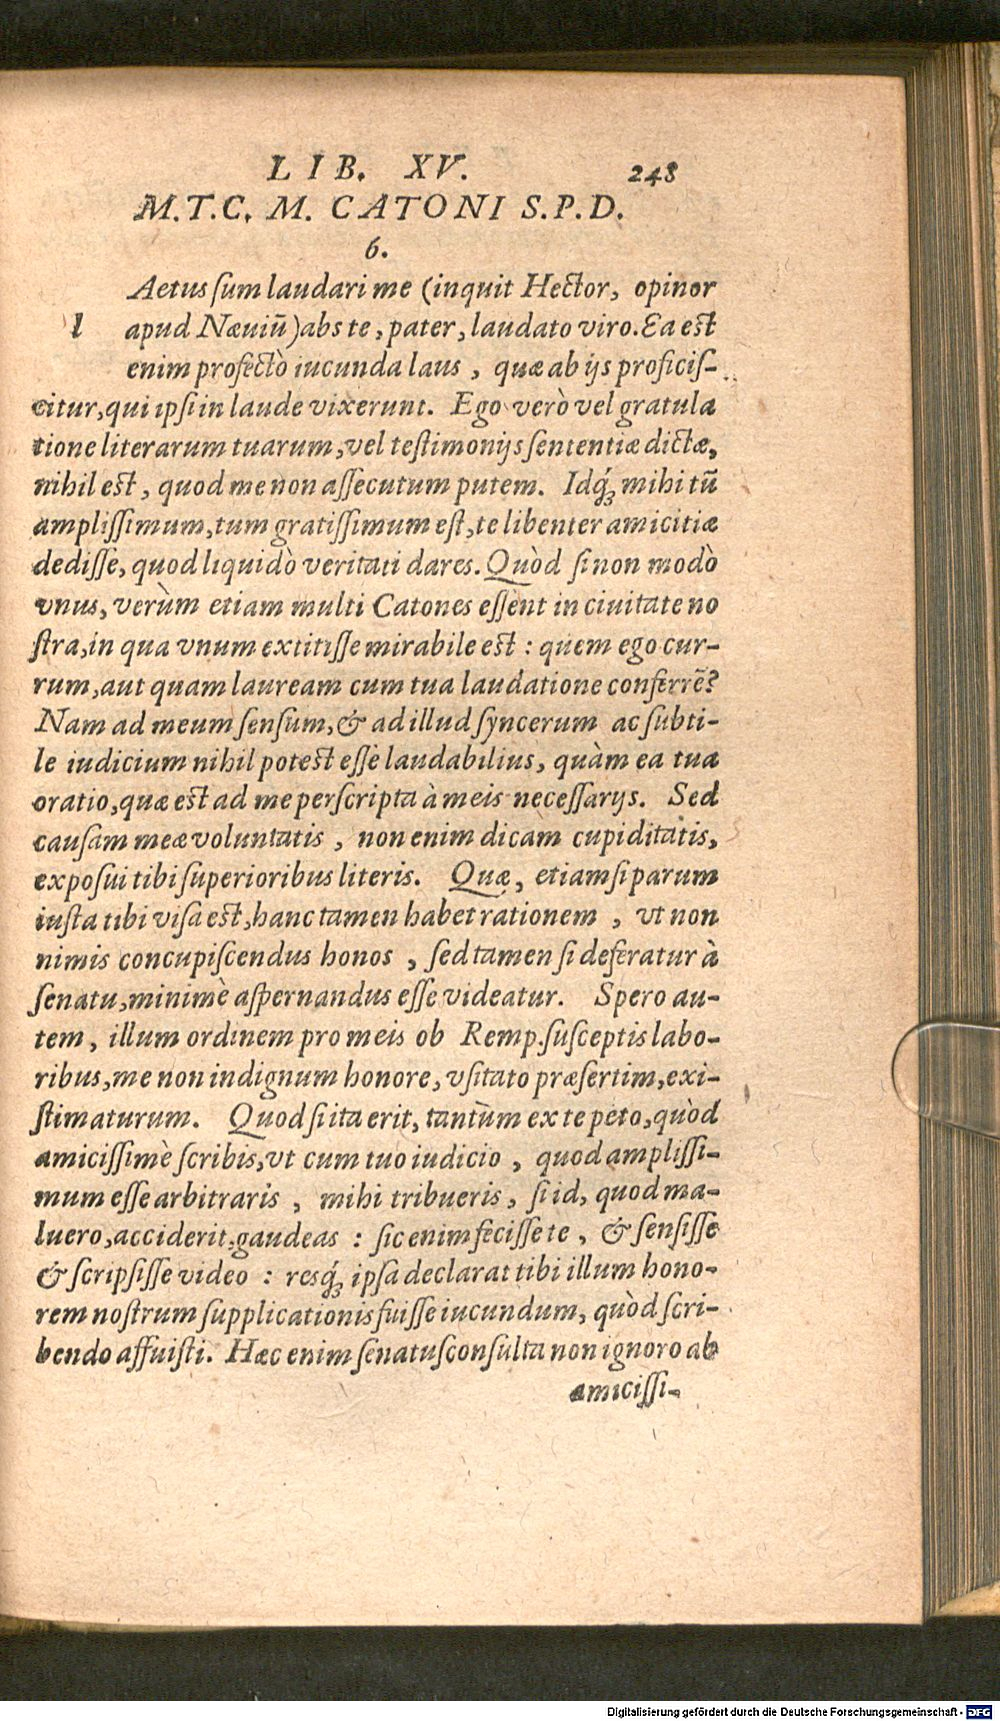 LIB. XV. 248
M.T.C. M. CATONI S.P.D.
6.
Aetus sum laudari me (inquit Hector, opinor
l apud Næuiũ) abs te, pater, laudato viro. Ea est
enim profectò iucunda laus, quæ ab ijs proficis-
citur, qui ipsi in laude vixerunt. Ego verò vel gratula
tione literarum tuarum, vel testimonijs sententiæ dictæ,
nihil est, quod me non assecutum putem. Idq́; mihi tũ
amplissimum, tum gratissimum est, te libenter amicitiæ
dedisse, quod liquidò veritati dares. Quòd si non modò
vnus, verùm etiam multi Catones essent in ciuitate no
stra, in qua vnum extitisse mirabile est: quem ego cur-
rum, aut quam lauream cum tua laudatione conferrẽ?
Nam ad meum sensum, & ad illud syncerum ac subti-
le iudicium nihil potest esse laudabilius, quàm ea tua
oratio, quæ est ad me perscripta à meis necessarijs. Sed
causam meæ voluntatis, non enim dicam cupiditatis,
exposui tibi superioribus literis. Quæ, etiamsi parum
iusta tibi visa est, hanc tamen habet rationem, vt non
nimis concupiscendus honos, sed tamen si deferatur à
senatu, minimè aspernandus esse videatur. Spero au-
tem, illum ordinem pro meis ob Remp. susceptis labo-
ribus, me non indignum honore, vsitato præsertim, exi-
stimaturum. Quod si ita erit, tantùm ex te peto, quòd
amicissimè scribis, vt cum tuo iudicio, quod amplissi-
mum esse arbitraris, mihi tribueris, si id, quod ma-
luero, acciderit, gaudeas: sic enim fecisse te, & sensisse
& scripsisse video: resq́; ipsa declarat tibi illum hono-
rem nostrum supplicationis fuisse iucundum, quòd scri-
bendo affuisti. Hæc enim senatusconsulta non ignoro ab
amicissi-
Digitalisierung gefördert durch die Deutsche Forschungsgemeinschaft - DFG